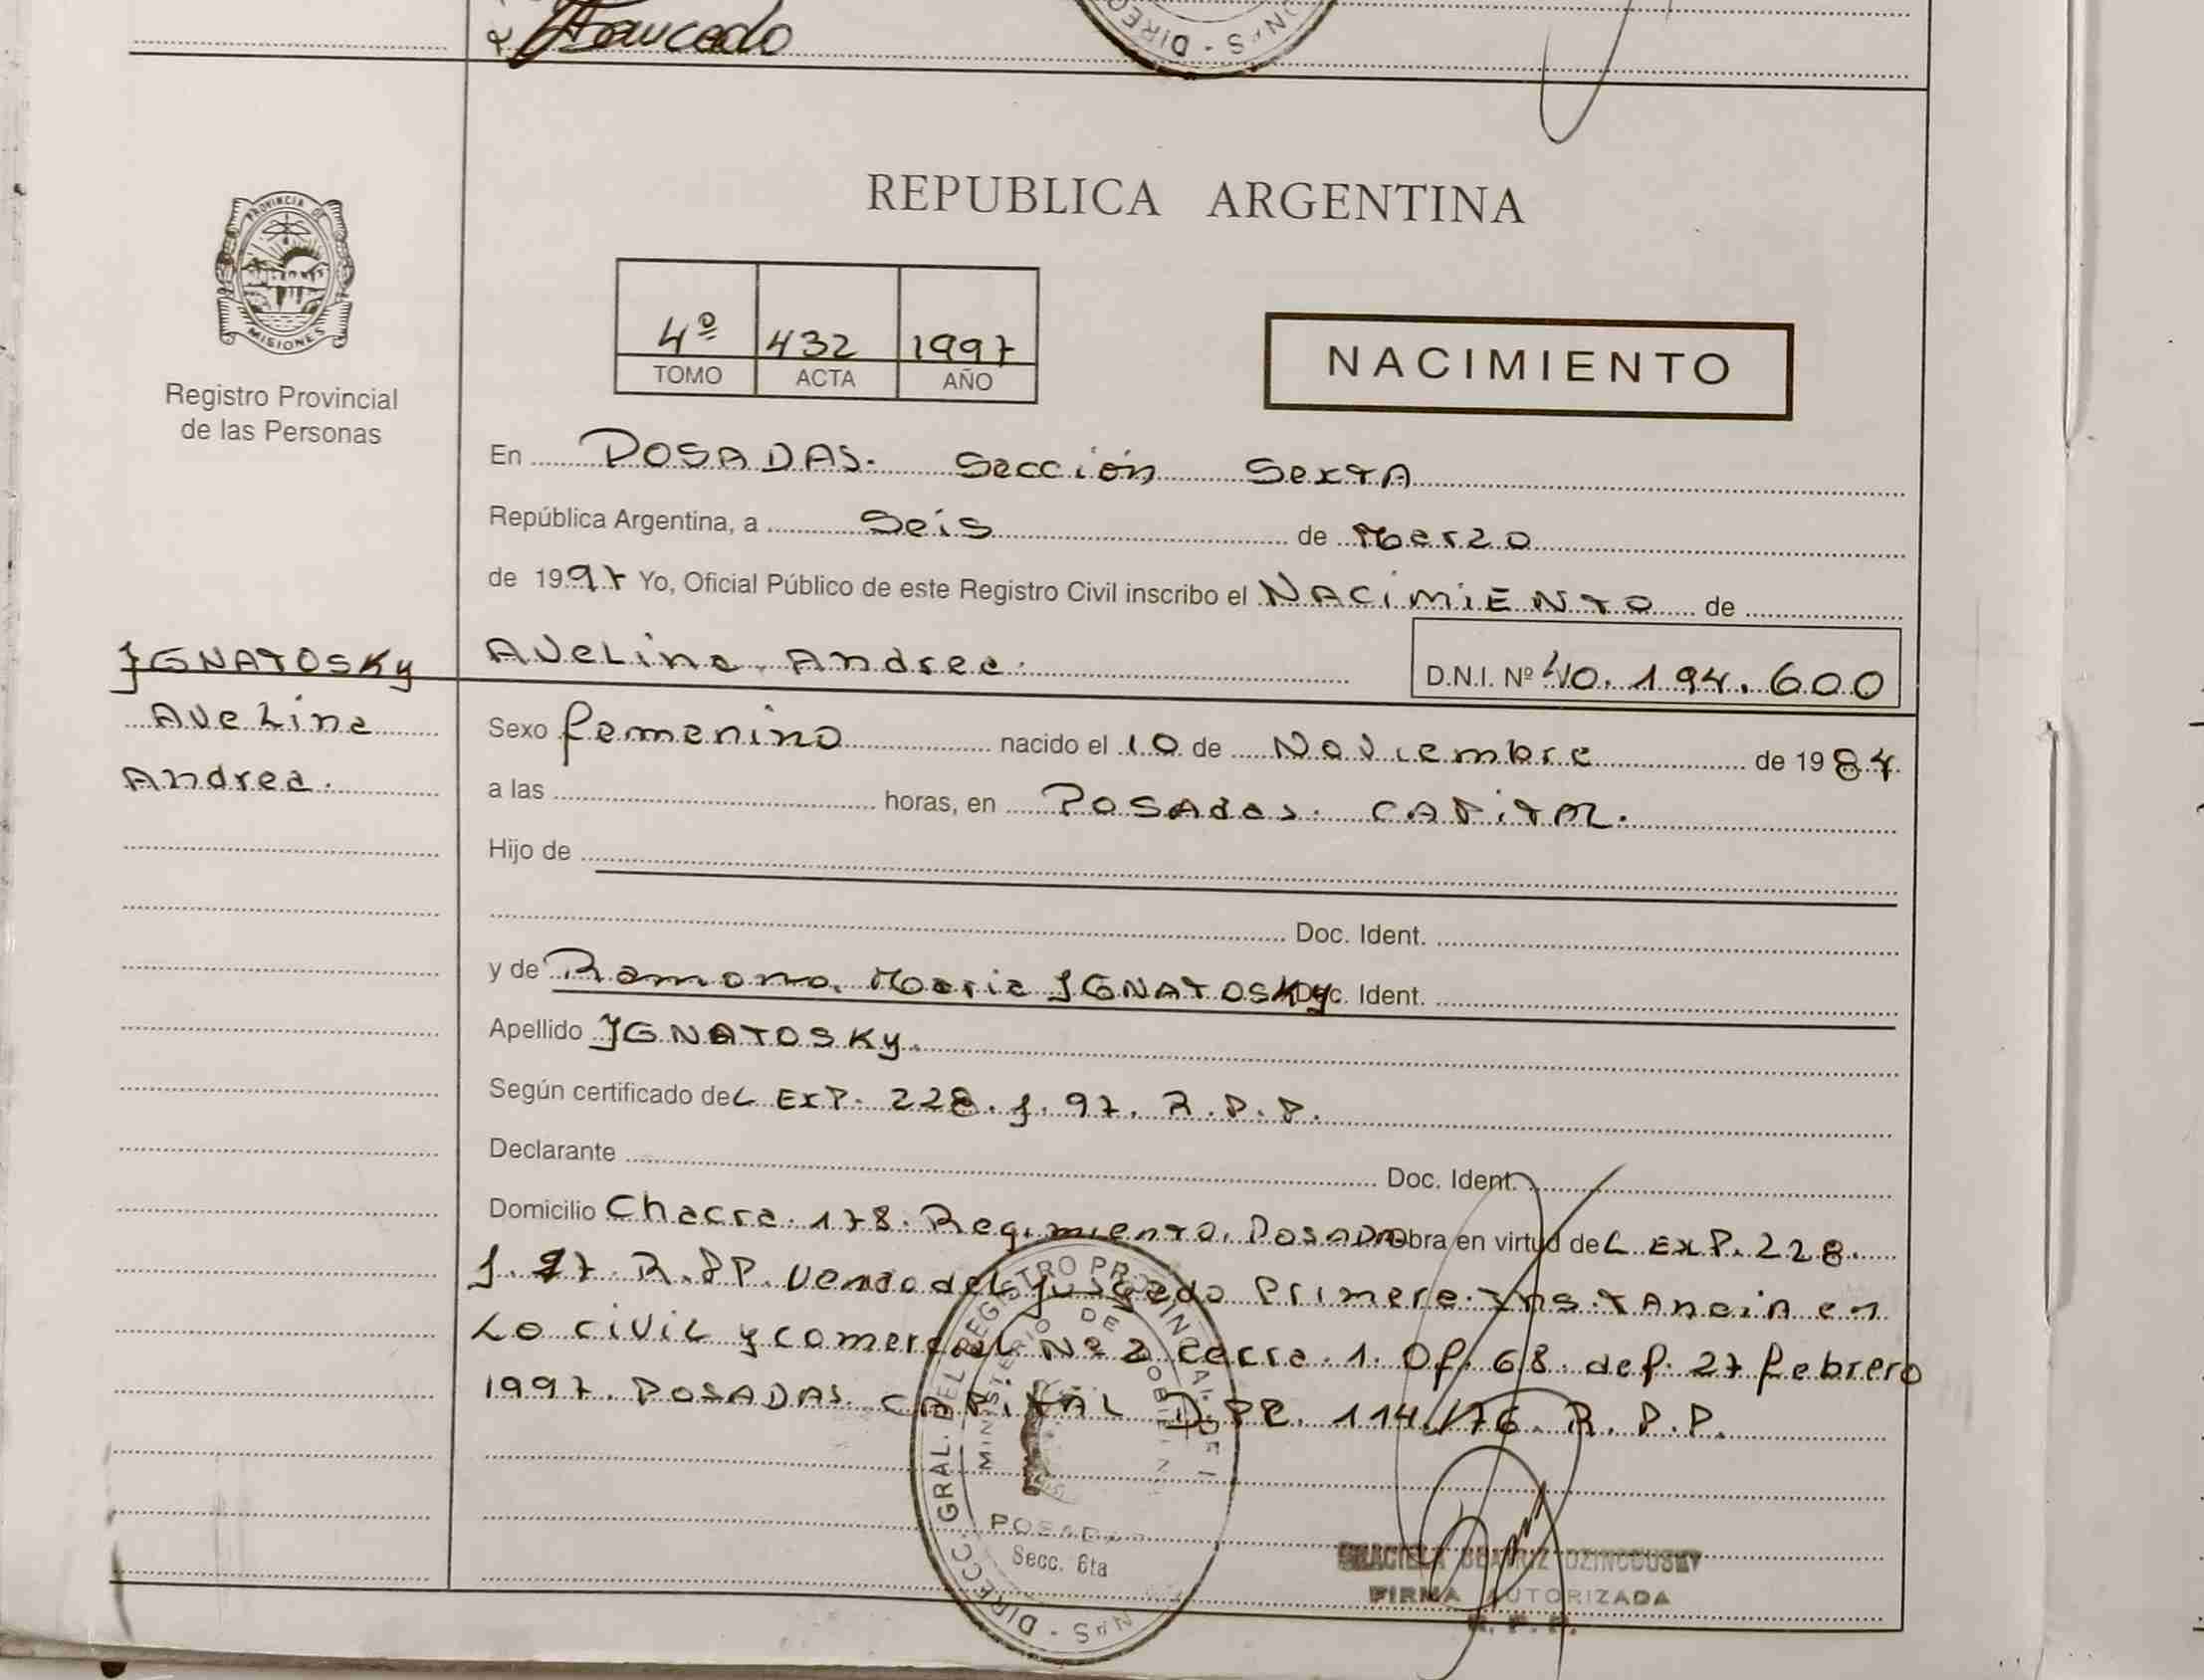 Saucedo
DIREC
NES
PROVINCIA DE
MISIONES
Registro Provincial
de las Personas
REPUBLICA ARGENTINA
4º 432 1997
TOMO ACTA AÑO
NACIMIENTO
En POSADAS. Sección SextA
República Argentina, a Seis de Marzo
de 1997 Yo, Oficial Público de este Registro Civil inscribo el NACIMIENTO de
IGNATOSKy
AVeLina
Andrea.
AVeLina Andrea.
D.N.I. Nº 40.194.600
Sexo femenino nacido el 10 de Noviembre de 1984
a las horas, en POSAdas. CAPiTAL.
Hijo de
Doc. Ident.
y de Ramona Maria IGNATOSKy Doc. Ident.
Apellido IGNATOSKy.
Según certificado deL ExP. 228. J. 97. R.P.P.
Declarante Doc. Ident.
Domicilio Chacra. 178. Regimiento. POSADA Obra en virtud deL ExP. 228.
J. 97 R.PP. del Jusgado Primera InsTAnciA en
Lo civiL y comercial Nº 2 1. Of. 68. def. 27 febrero
1997. POSADAS. CAPiTAL 114/76. R.P.P.
DIRECC. GRAL. DEL REGISTRO PROVINCIAL DE
MINISTERIO DE GOBIERNO
POSADAS
Secc. 6ta
GRACIELA BEATRIZ
FIRMA AUTORIZADA
R.P.P.